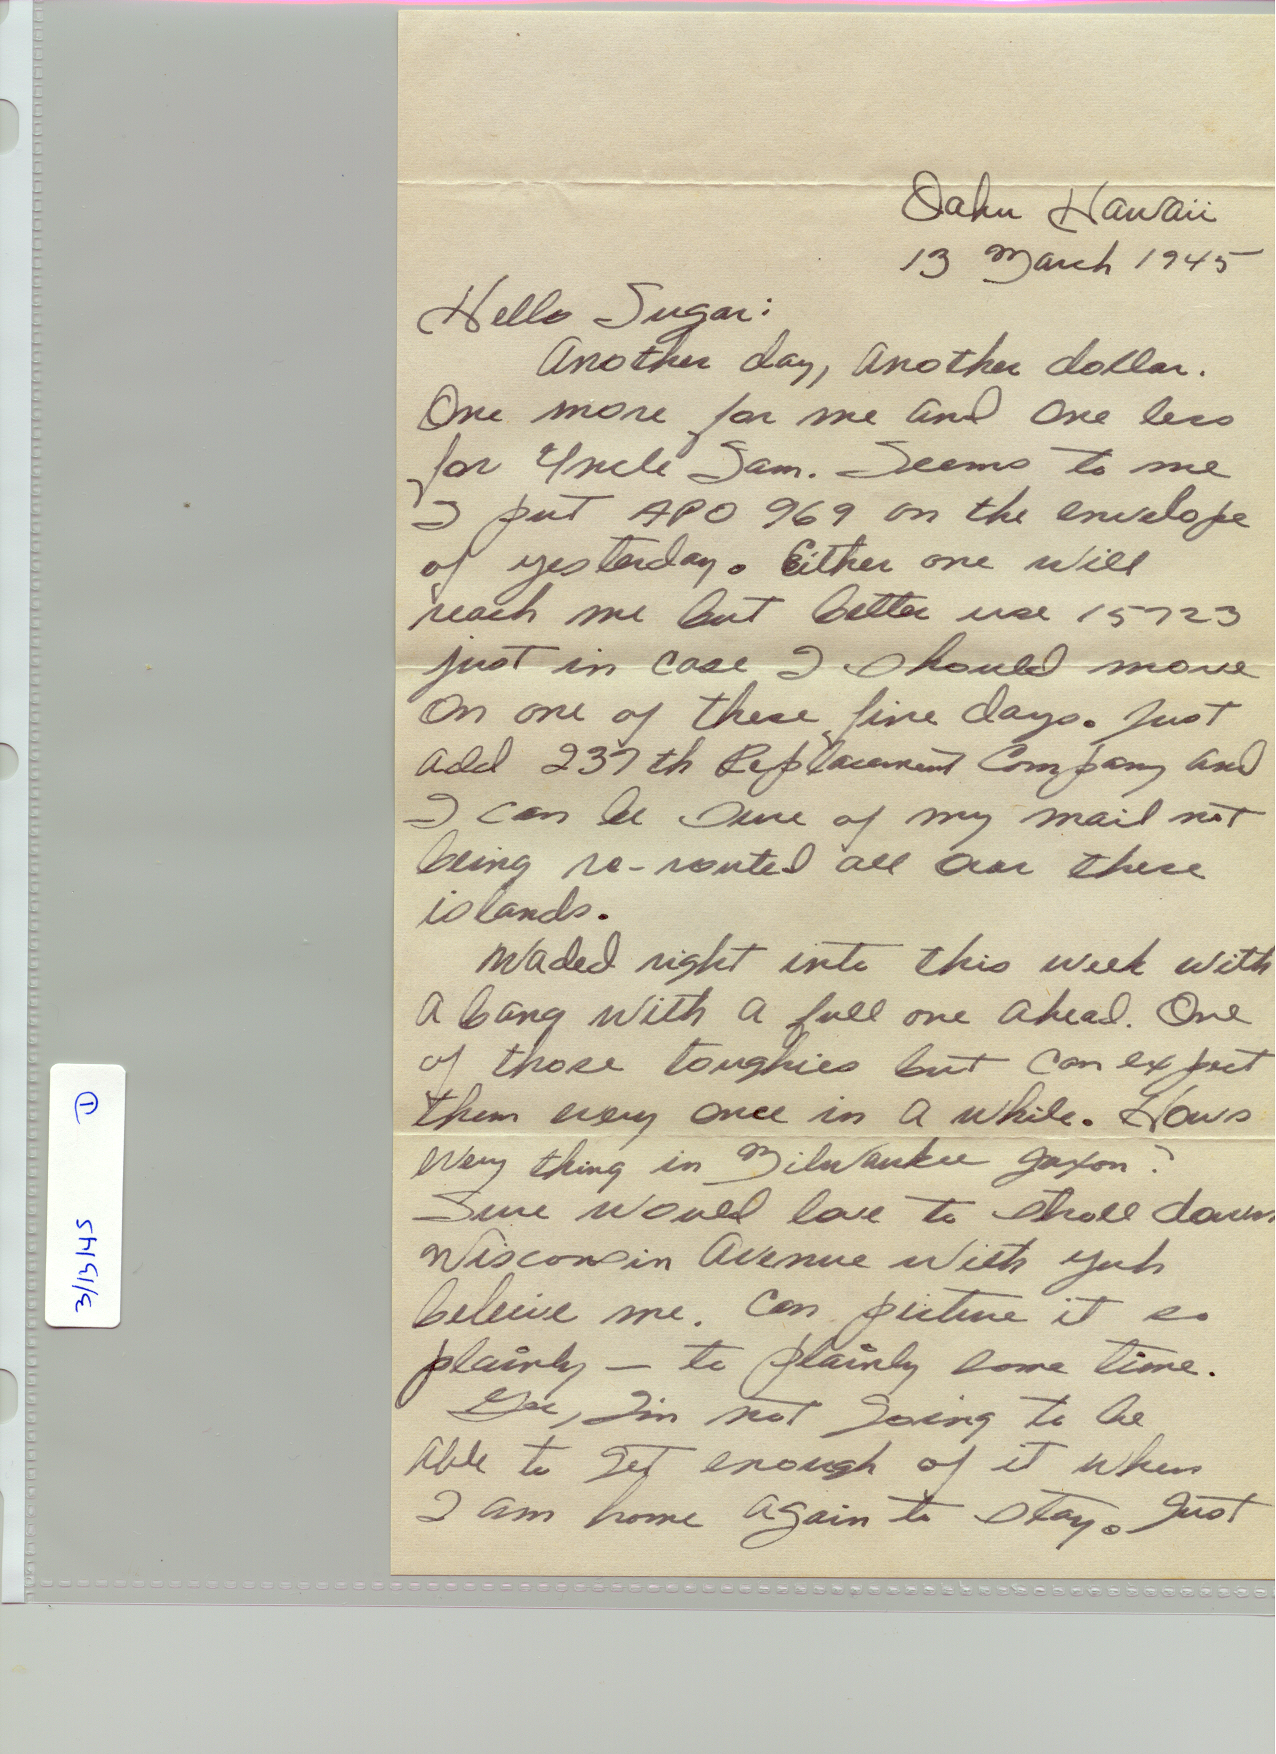 Oahu Hawaii
13 March 1945
Hello Sugar:
Another day, another dollar.
One more for me and one less
for Uncle Sam. Seems to me
I put APO 969 on the envelope
of yesterday. Either one will
reach me but better use 15723
just in case I should move
on one of these fine days. Just
add 237th Replacement Company and
I can be sure of my mail not
being re-routed all over these
islands.
Waded right into this week with
a bang with a full one ahead. One
of those toughies but can expect
them every once in a while. Hows
every thing in Milwaukee
Sure would love to stroll down
Wisconsin Avenue with yuh
beleive me. Can picture it so
plainly — to plainly some time.
Gee, I'm not going to be
able to get enough of it when
I am home again to stay. Just
3/13/45 ①